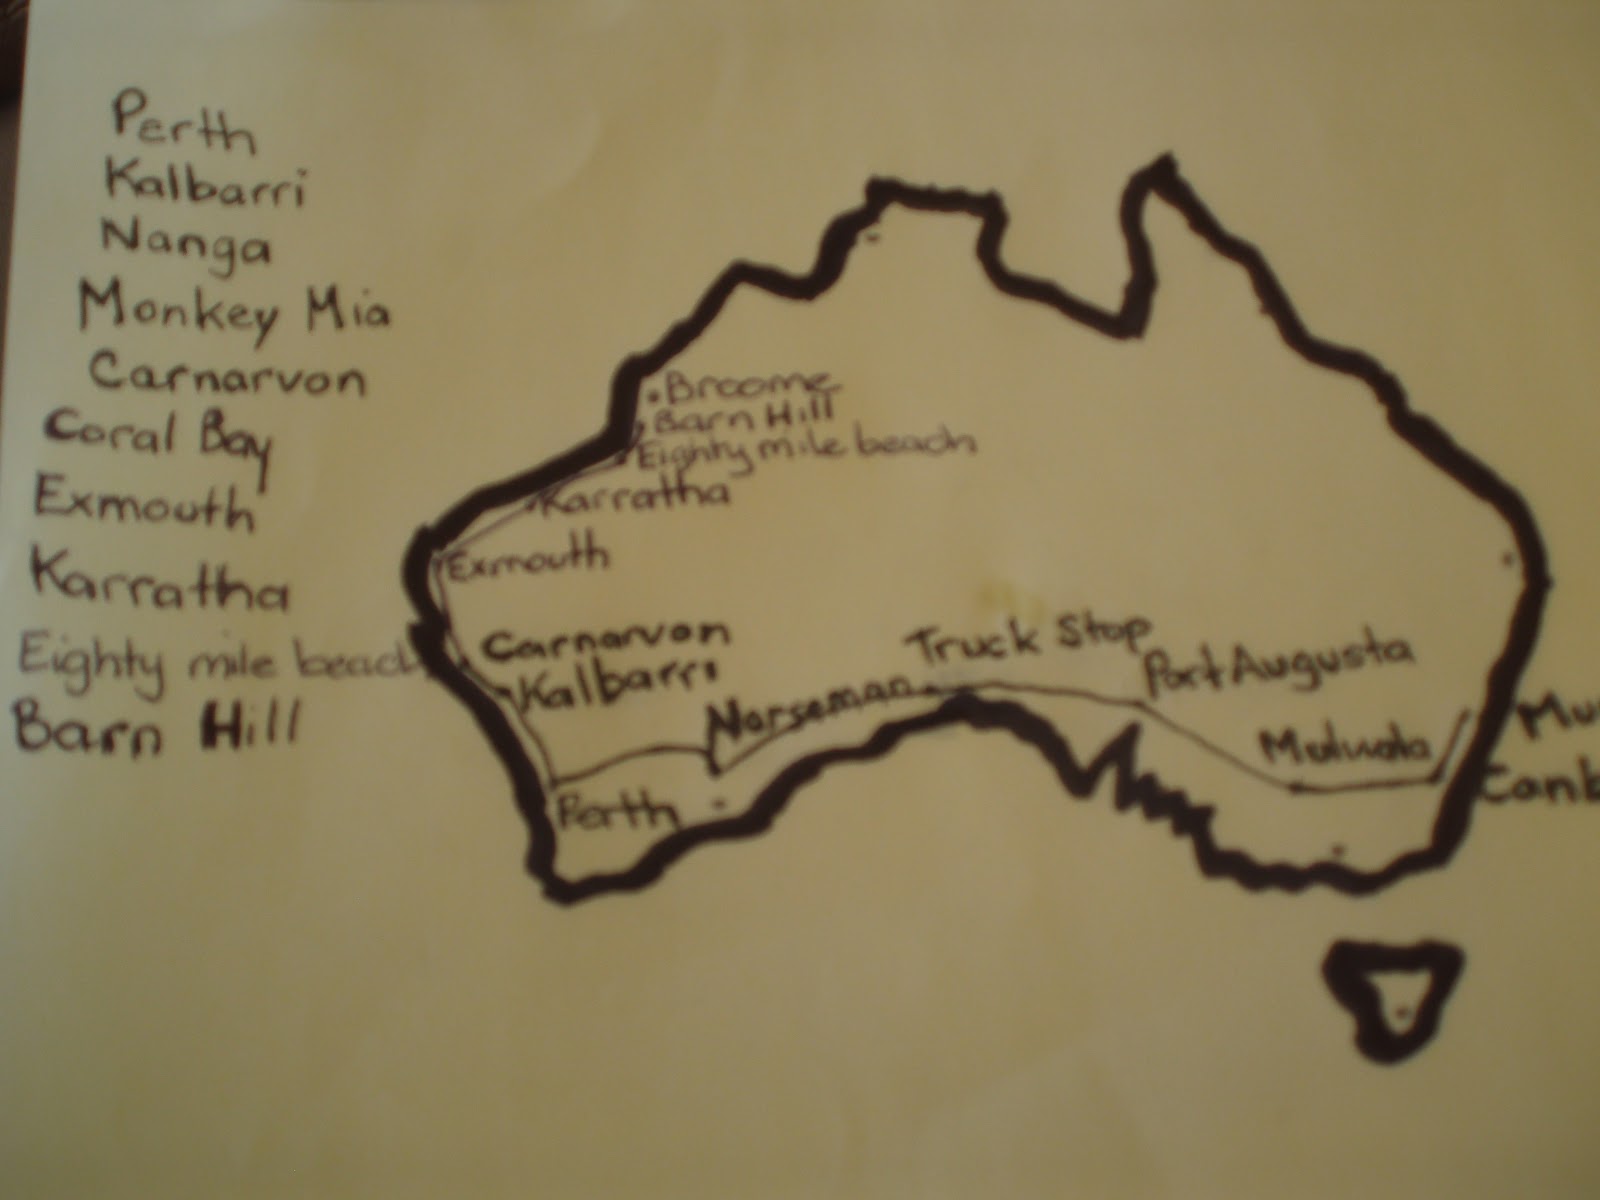 Perth
Kalbarri
Nanga
Monkey Mia
Carnarvon
Coral Bay
Exmouth
Karratha
Eighty mile beach
Barn Hill
Broome
Barn Hill
Eighty mile beach
Karratha
Exmouth
Carnarvon
Kalbarri
Perth
Norseman
Truck Stop
Port Augusta
Mulwala
Mu
Canb